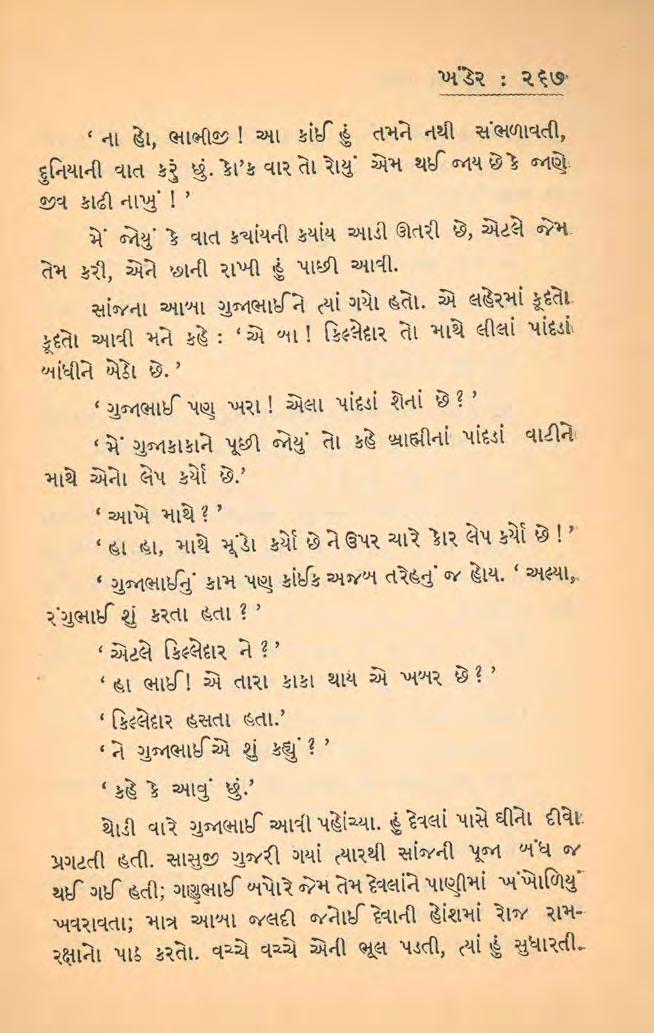 ખંડેર : ૨૬૭
‘ ના હો, ભાભીજી ! આ કાંઈ હું તમને નથી સંભળાવતી,
દુનિયાની વાત કરું છું. કો’ક વાર તો રોયું એમ થઈ જાય છે કે જાણે
જીવ કાઢી નાખું ! ’
મેં જોયું કે વાત કયાંયની કયાંય આડી ઊતરી છે, એટલે જેમ
તેમ કરી, એને છાની રાખી હું પાછી આવી.
સાંજના આબા ગુજાભાઈને ત્યાં ગયો હતો. એ લહેરમાં કૂદતો
કૂદતો આવી મને કહે : ‘ એ બા ! કિલ્લેદાર તો માથે લીલાં પાંદડાં
બાંધીને બેઠો છે. ’
‘ ગુજાભાઈ પણ ખરા ! એલા પાંદડાં શેનાં છે ? ’
‘ મેં ગુજાકાકાને પૂછી જોયું તો કહે બ્રાહ્મીનાં પાંદડાં વાટીને
માથે એનો લેપ કર્યો છે.’
‘ આખે માથે ? ’
‘ હા હા, માથે મૂંડો કર્યો છે ને ઉપર ચારે કોર લેપ કર્યો છે ! ’
‘ ગુજાભાઈનું કામ પણ કાંઈક અજબ તરેહનું જ હોય. ‘ અલ્યા,
રંગુભાઈ શું કરતા હતા ? ’
‘ એટલે કિલ્લેદાર ને ? ’
‘ હા ભાઈ ! એ તારા કાકા થાય એ ખબર છે ? ’
‘ કિલ્લેદાર હસતા હતા.’
‘ ને ગુજાભાઈએ શું કહ્યું ? ’
‘ કહે કે આવું છું.’
થોડી વારે ગુજાભાઈ આવી પહોંચ્યા. હું દેવલાં પાસે ઘીનો દીવો
પ્રગટતી હતી. સાસુજી ગુજરી ગયાં ત્યારથી સાંજની પૂજા બંધ જ
થઈ ગઈ હતી; ગણુભાઈ બપોરે જેમ તેમ દેવલાંને પાણીમાં ખંખોળિયું
ખવરાવતા; માત્ર આબા જલદી જનોઈ દેવાની હોંશમાં રોજ રામ-
રક્ષાનો પાઠ કરતો. વચ્ચે વચ્ચે એની ભૂલ પડતી, ત્યાં હું સુધારતી.